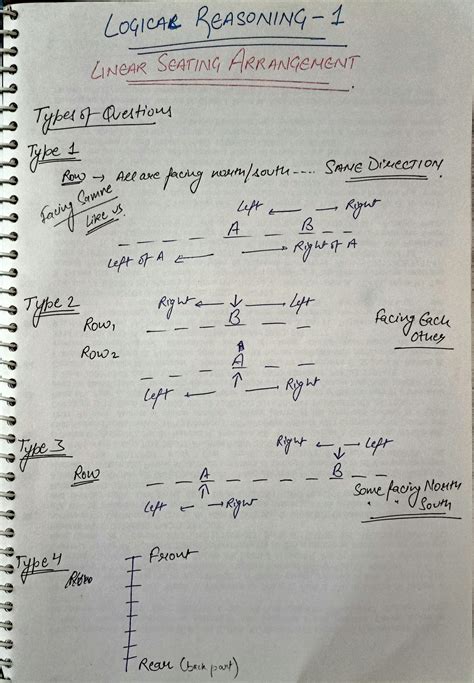 LOGICAL REASONING - 1
LINEAR SEATING ARRANGEMENT
Types of Questions
Type 1
Row → All are facing north/south .... SAME DIRECTION
Facing Samne
Like us.
Left ← → Right
A B
Left of A ← → Right of A
Type 2
Right ← ↓ → Left
Row1 B
Facing Each
Other
Row2 A
Left ← ↑ → Right
Type 3
Right ← ↓ → Left
Row A B
Left ← ↑ → Right
Some facing North
" " South
Type 4
Front
Rear (back part)